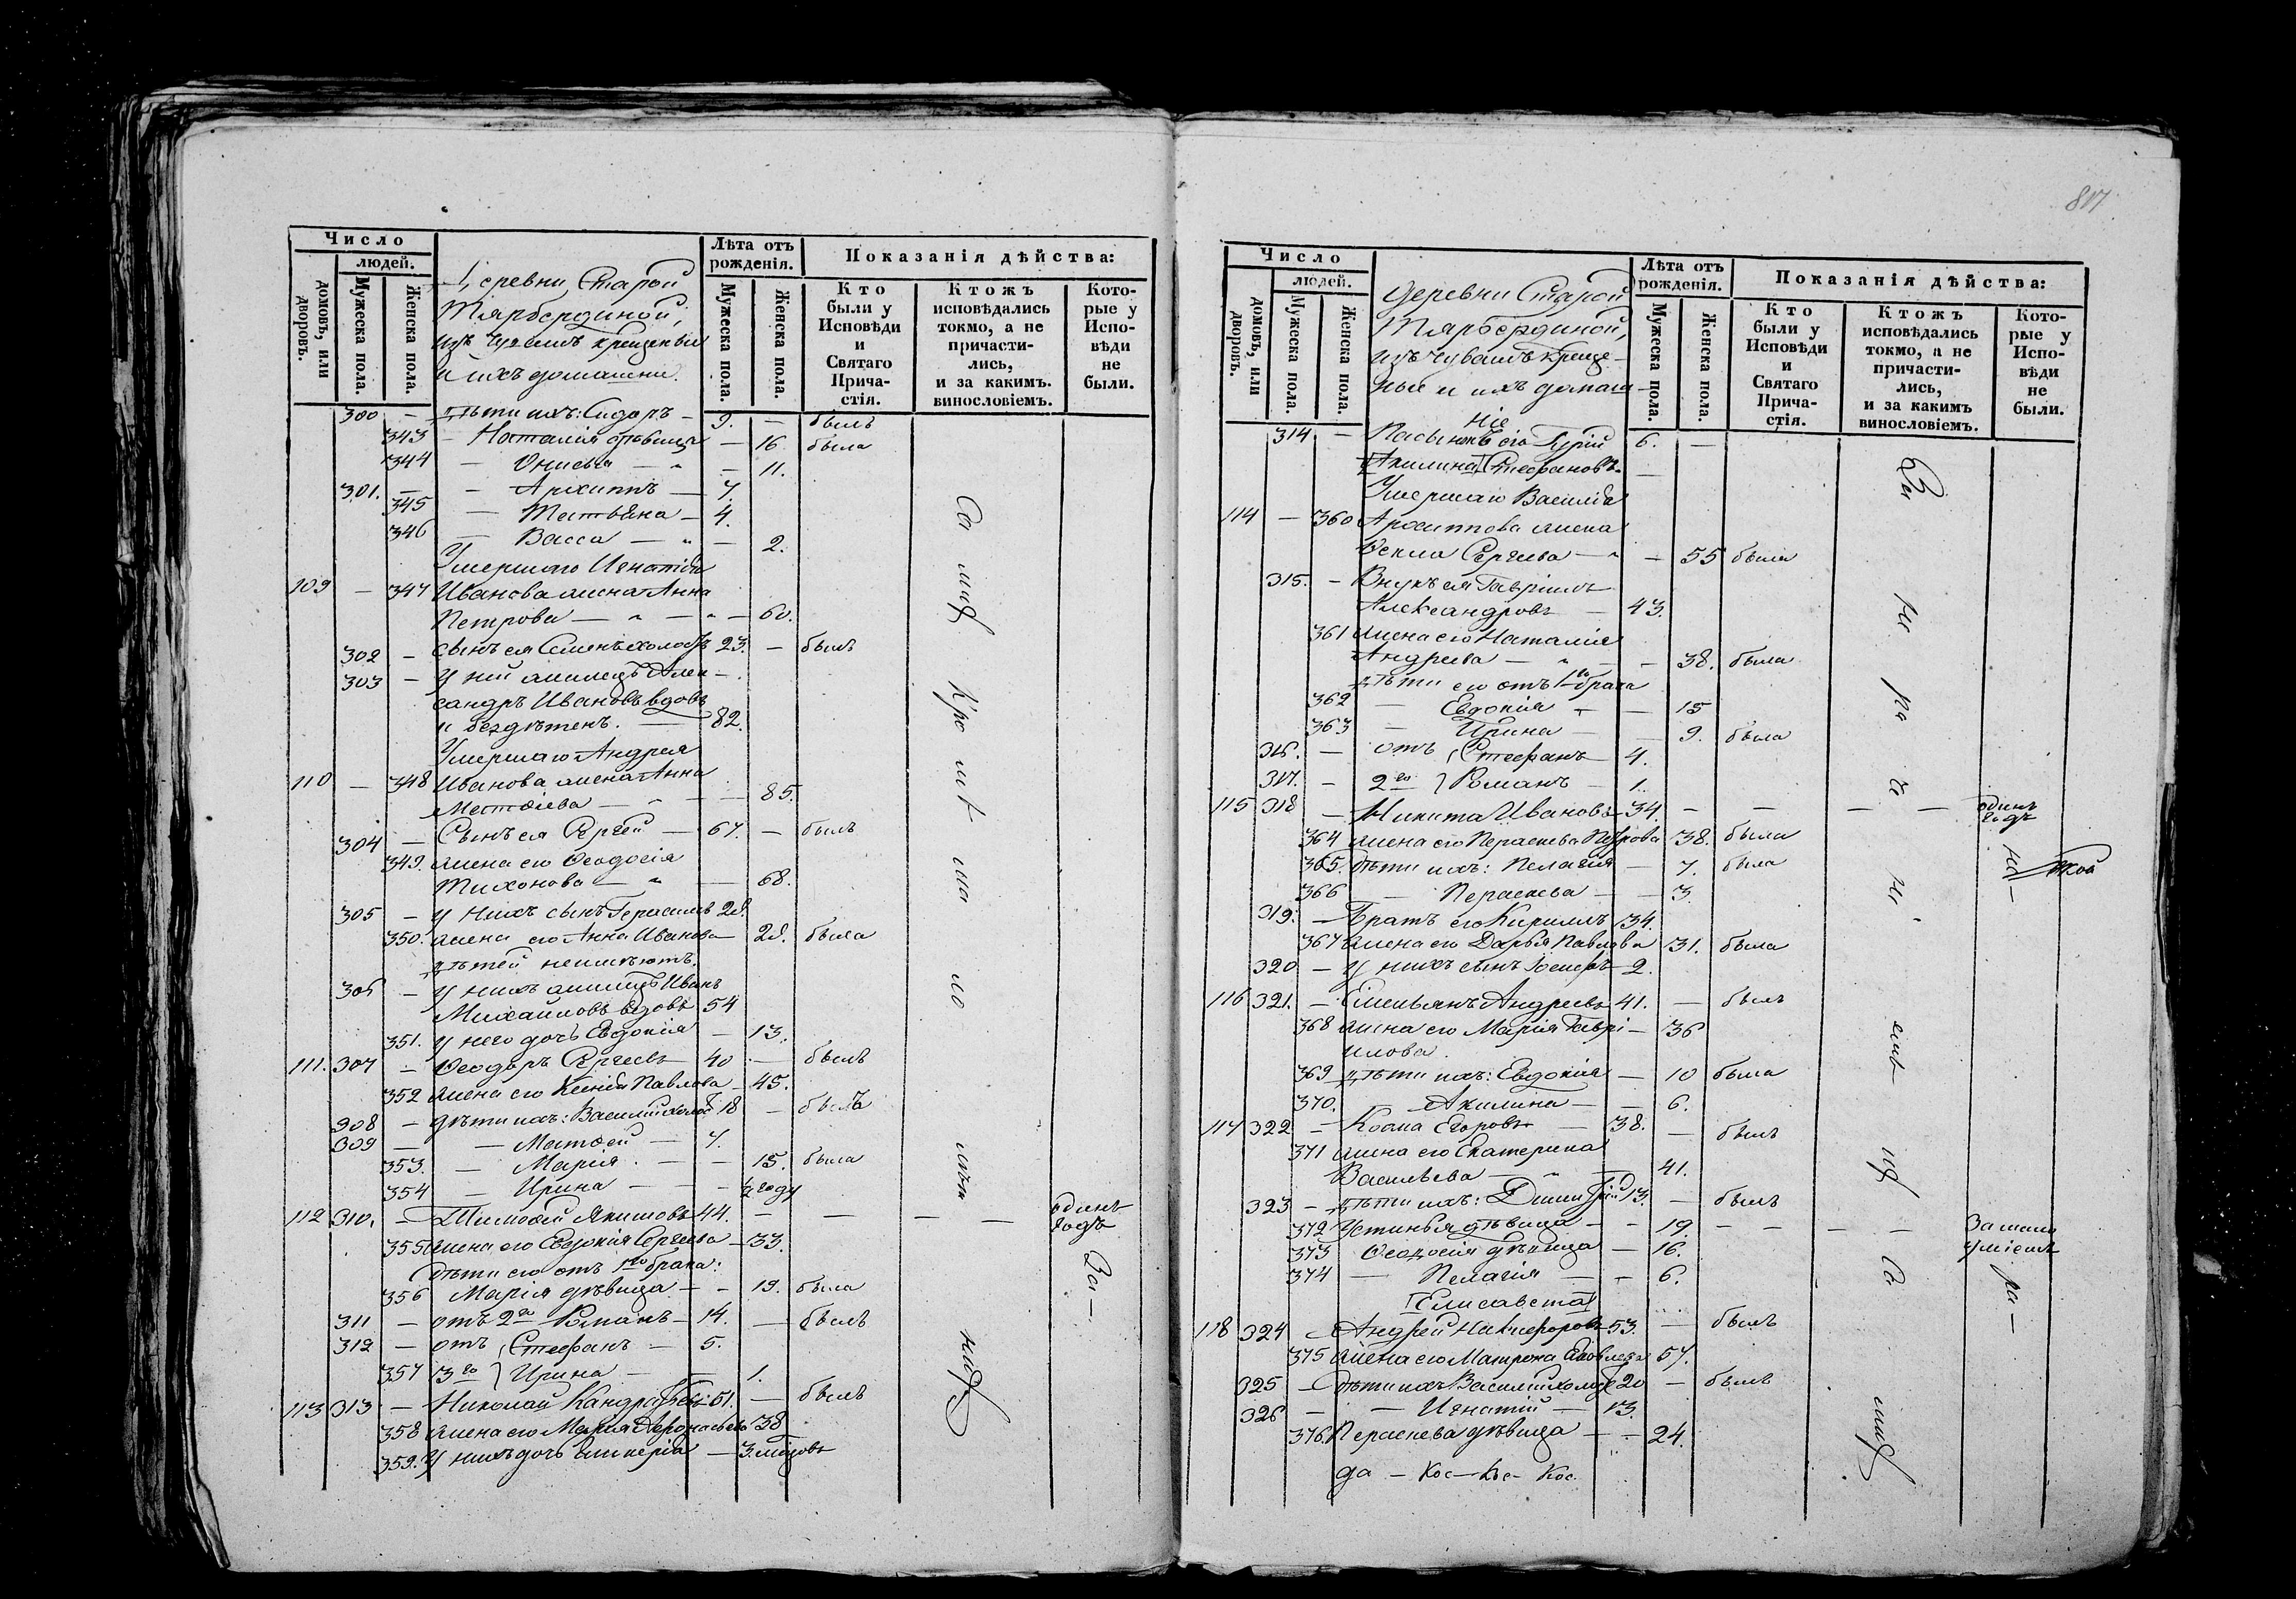 Число
людей.
домовъ, или дворовъ.
Мужеска пола.
Женска пола.
Деревни Старой
Тярбердиной,
изъ Чувашъ крещеные
и ихъ домашни.
Лѣта отъ рожденія.
Мужеска пола.
Женска пола.
Показанія дѣйства:
Кто были у Исповѣди и Святаго Прича- стія.
Ктожъ исповѣдались токмо, а не причасти- лись, и за какимъ. винословіемъ.
Кото- рые у Испо- вѣди не были.
300 — дѣти ихъ: Сидоръ — 9. — былъ
343 — Наталія дѣвица — 16 была
344 — Онисья — 11.
301. — Архиппъ — 7.
345 — Татьяна — 4.
346 — Васса — 2.
Умершаго Игнатія
109 — 347 Иванова жена Анна
Петрова — 60.
302 — сынъ ея Семенъ холостъ 23. — былъ
303 — У ней жилецъ Алек-
сандръ Ивановъ вдовъ
и бездѣтенъ. — 82.
Умершаго Андрея
110 — 348 Иванова жена Анна
Матѳіева — 85.
304 — Сынъ ея Сергей — 67. — былъ
349. жена его Ѳеодосія
Тихонова — 68.
305 — У нихъ сынъ Герасимъ 28.
350. жена его Анна Иванова — 28. была
дѣтей неимѣютъ.
306 — У нихъ жилецъ Иванъ
Михайловъ вдовъ 54
351. У него дочь Евдокія — 13.
111. 307 — Ѳеодоръ Сергеевъ 40 — былъ
352 жена его Ксенія Павлова — 45.
308 — дѣти ихъ: Василій холостъ 18 — былъ
309 — Матѳей — 7.
353. — Марія. — 15. была
354 — Ирина — ½ году
112 310. — Тимоѳей Якимовъ 44. — — — — одинъ годъ
355 жена его Евдокія Сергеева — 33.
Дѣти его отъ 1го брака:
356 Марія дѣвица — 19. была
311 — отъ 2го Романъ — 14. — былъ
312 — отъ Стефанъ — 5.
357 3го Ирина — 1.
113 313 — Николай Кандратьевъ 51. — былъ
358 жена его Марія Афонасьева 38
359. У нихъ дочь Гликерія — 3. мѣсяцовъ
817
Число
людей.
домовъ, или дворовъ.
Мужеска пола.
Женска пола.
Деревни Старой
Тярбердиной,
изъ Чувашъ креще-
ные и ихъ домаш-
ніе
Лѣта отъ рожденія.
Мужеска пола.
Женска пола.
Показанія дѣйства:
Кто были у Исповѣди и Святаго Прича- стія.
Ктожъ исповѣдались токмо, а не причасти- лись, и за какимъ винословіемъ.
Кото- рые у Испо- вѣди не были.
314 — Пасынокъ его 6. —
Акилина Стефановъ —
Умершаго Василія
114 — 360 Архиппова жена
Ѳекла Сергеева — 55 была
315. — Внукъ ея Гавріилъ
Александровъ — 43.
361 жена его Наталія
Андреева — 38. была
дѣти его отъ 1го брака
362 — Евдокія — 15
363 — Ирина — 9. была
316. — отъ Стефанъ 4.
317. — 2го Романъ — 1.
115 318 — Никита Ивановъ 34. — — — — одинъ годъ
364 жена его Параскева Петрова 38. была
365. Дѣти ихъ: Пелагія — 7. была
366 — Параскева — 3.
319. — Братъ его Кириллъ 34.
367 жена его Дарья Павлова 31. была
320 — У нихъ сынъ Іосифъ 2.
116 321. — Емельянъ Андреевъ 41. — былъ
368 жена его Марія Гаврі- — 36
илова.
369 дѣти ихъ: Евдокія — 10 была
370. — Акилина — 6.
117 322 — Косма Егоровъ — 38. — былъ
371 жена его Екатерина
Васильева — 41.
323 — дѣти ихъ: Димитрій 13. — былъ
372 Устинья дѣвица — 19. — — — —
373 Ѳеодосія дѣвица — 16.
374 — Пелагія — 6.
Елисавета
118 324 — Андрей Никифоровъ 53. — былъ
375 жена его Матрона Яковлева 57.
325 — Дѣти ихъ Василій холостъ 20 — былъ
326 — Игнатій — 13.
376. Параскева дѣвица — 24.
да — Кос — Кос — Кос.